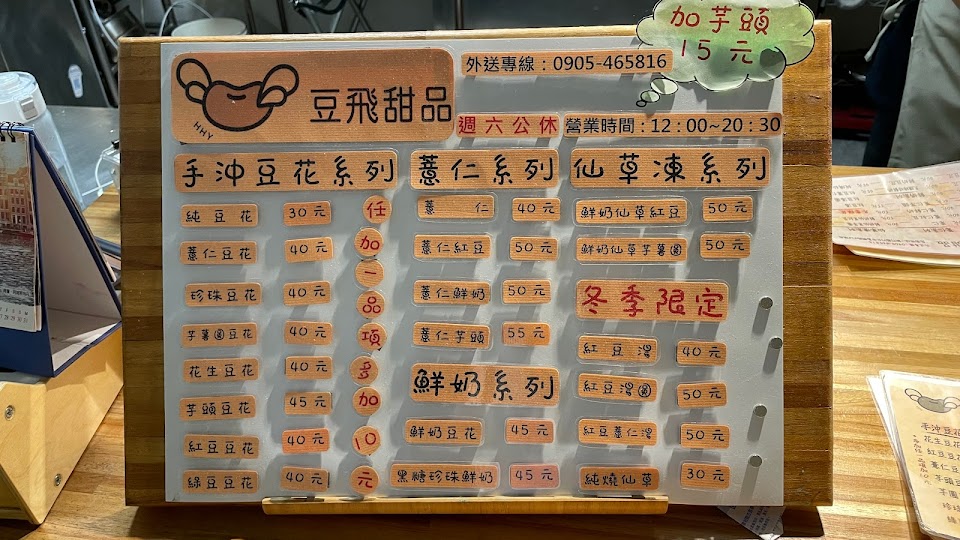 加芋頭
15元
外送專線：0905-465816
豆飛甜品
HHY
週六公休
營業時間：12：00~20：30
手沖豆花系列
純豆花 30元
薏仁豆花 40元
珍珠豆花 40元
芋薯圓豆花 40元
花生豆花 40元
芋頭豆花 45元
紅豆豆花 40元
綠豆豆花 40元
任加一品項多加10元
薏仁系列
薏仁 40元
薏仁紅豆 50元
薏仁鮮奶 50元
薏仁芋頭 55元
鮮奶系列
鮮奶豆花 45元
黑糖珍珠鮮奶 45元
仙草凍系列
鮮奶仙草紅豆 50元
鮮奶仙草芋薯圓 50元
冬季限定
紅豆湯 40元
紅豆湯圓 50元
紅豆薏仁湯 50元
純燒仙草 30元
手沖豆花
花生豆
紅豆豆
薏仁豆
芋頭豆
芋圓
珍珠